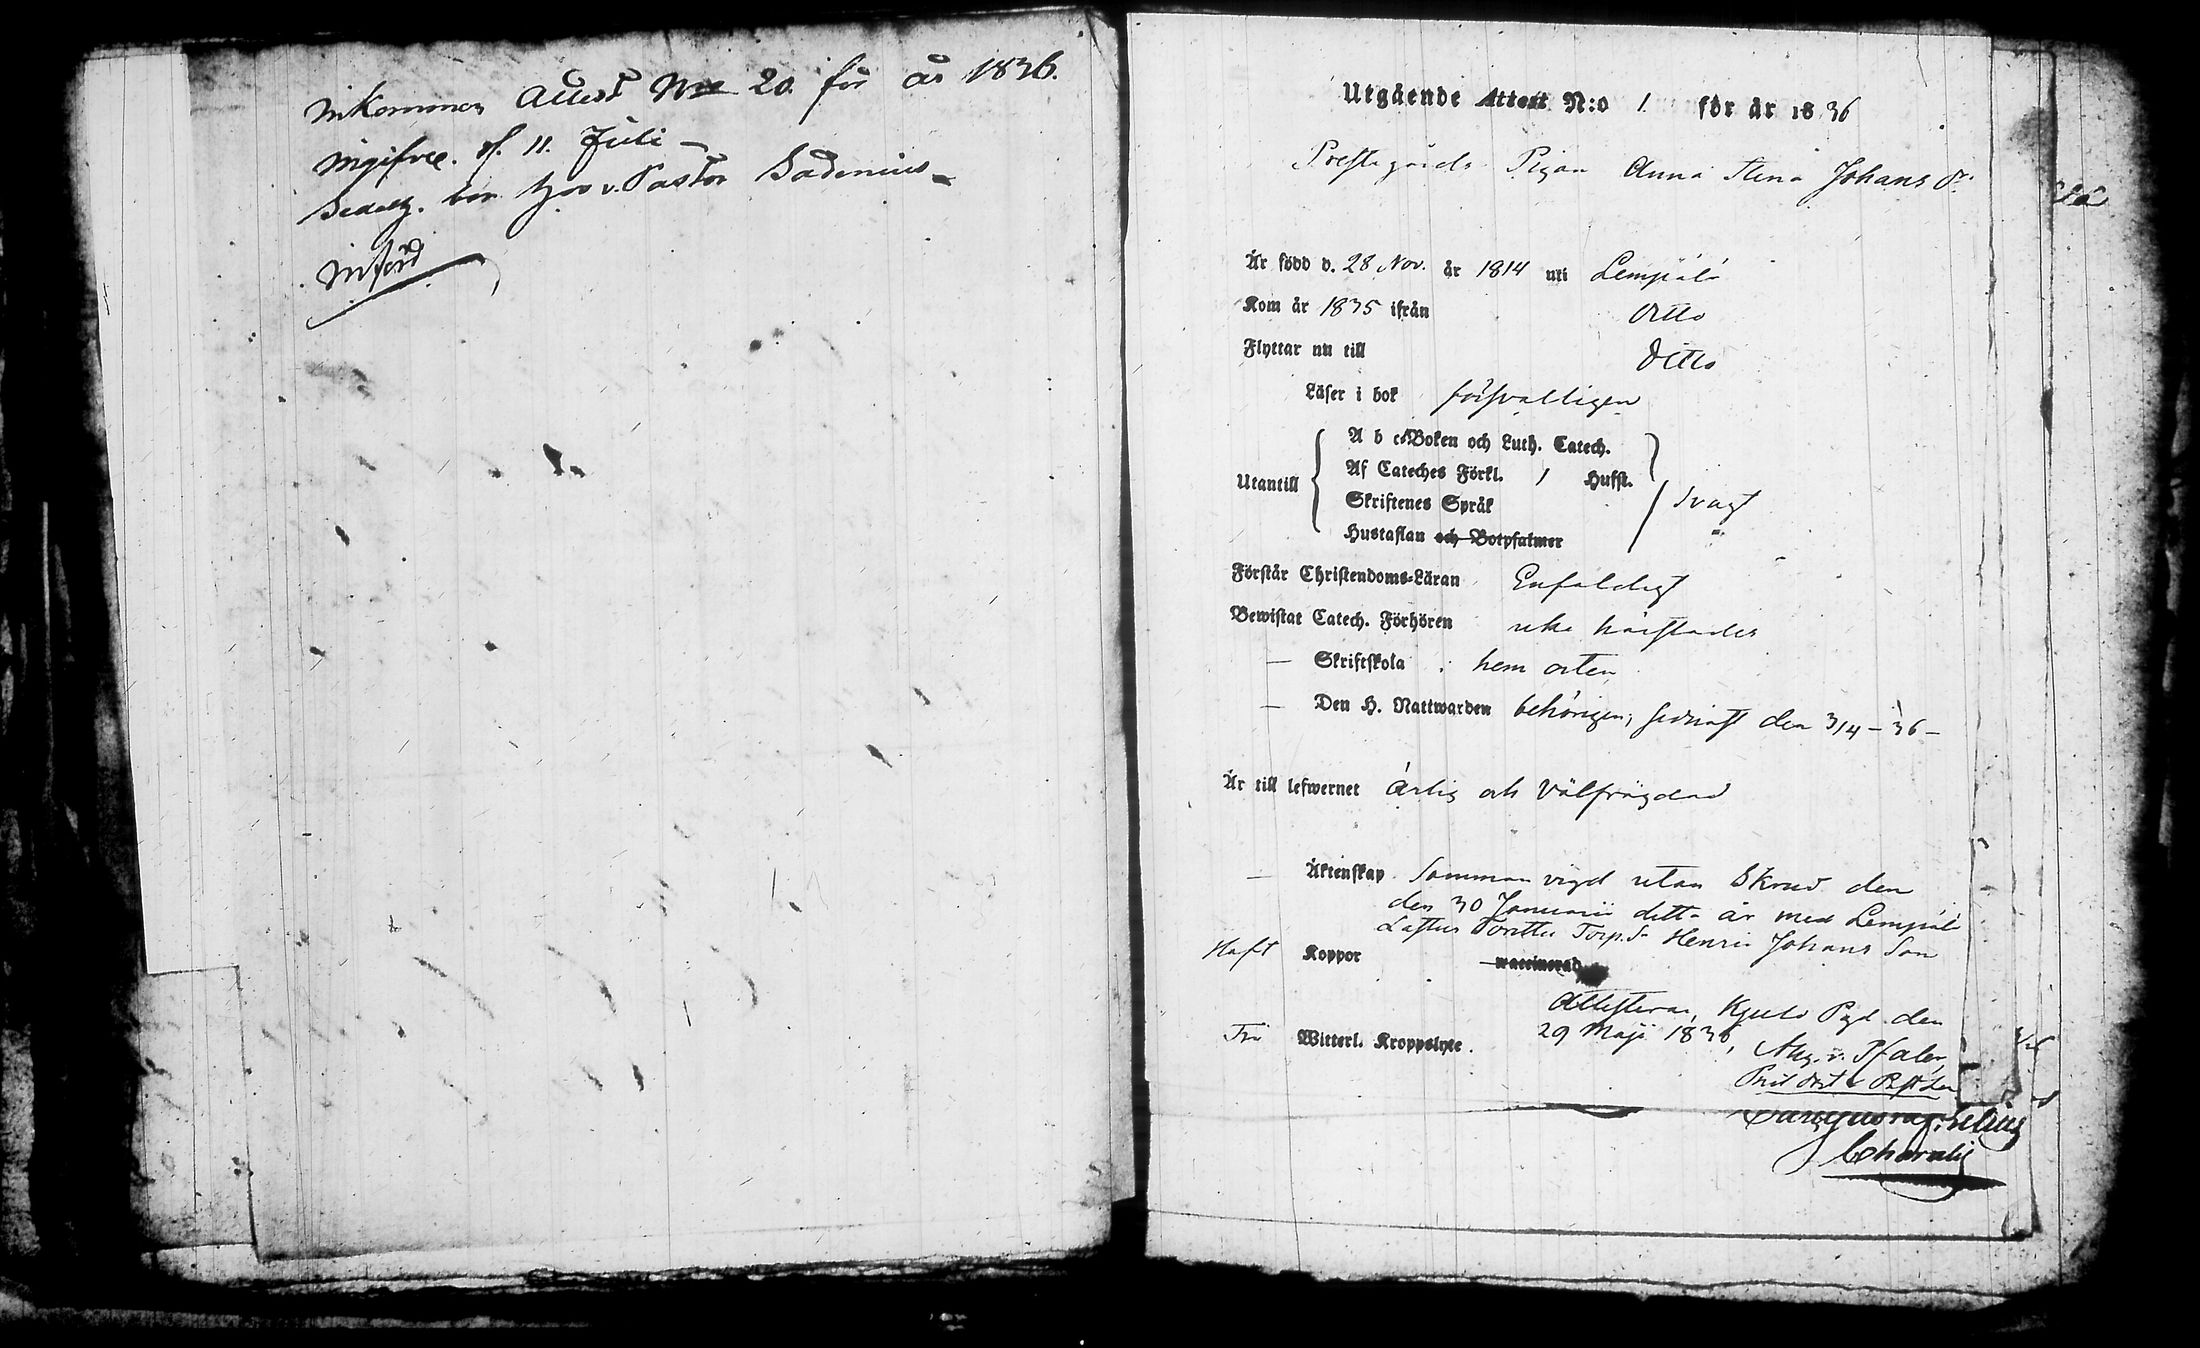 Inkommen Attest Nro 20. för år 1836.
d. 11. Juli
v. Pastor
Införd
Utgående Attest N:o 1 för år 1836
Prestegårds Pigan Anna Stina Johans dr
Är född d. 28 Nov. år 1814 uti Lempälä
Kom år 1835 ifrån Ditto
Flyttar nu till Ditto
Läser i bok försvarligen
A b c-Boken och Luth. Catech.
Af Cateches Förkl. 1 Hufst.
Utantill
Skriftenes Språk
Svagt
Hustaflan och Botpsalmer
Förstår Christendoms-Läran Enfaldigt
Bewistat Catech. Förhören icke härstädes
— Skriftskola i hem orten
— Den H. Nattwarden behörigen, sednast den 3/4 - 36 -
Är till lefwernet ärlig och välfrägdad
— Äktenskap Sammanvigd utan Skrud den
den 30 Januarii detta år med Lempälä
Torp. S. Henric Johans Son
Haft Koppor waccinerad
Attesterar, Kjulo Pgd. den
29 Maji 1836,
Fri Witterl. Kroppslyte.
Aug. v. Pfaler